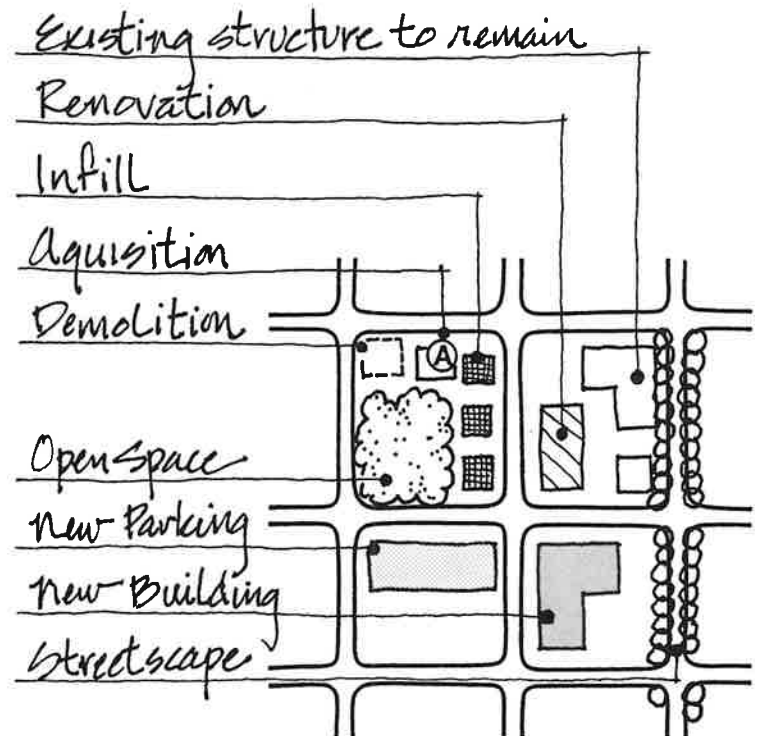 Existing structure to remain
Renovation
Infill
Aquisition
Demolition
A
Open Space
New Parking
New Building
Streetscape